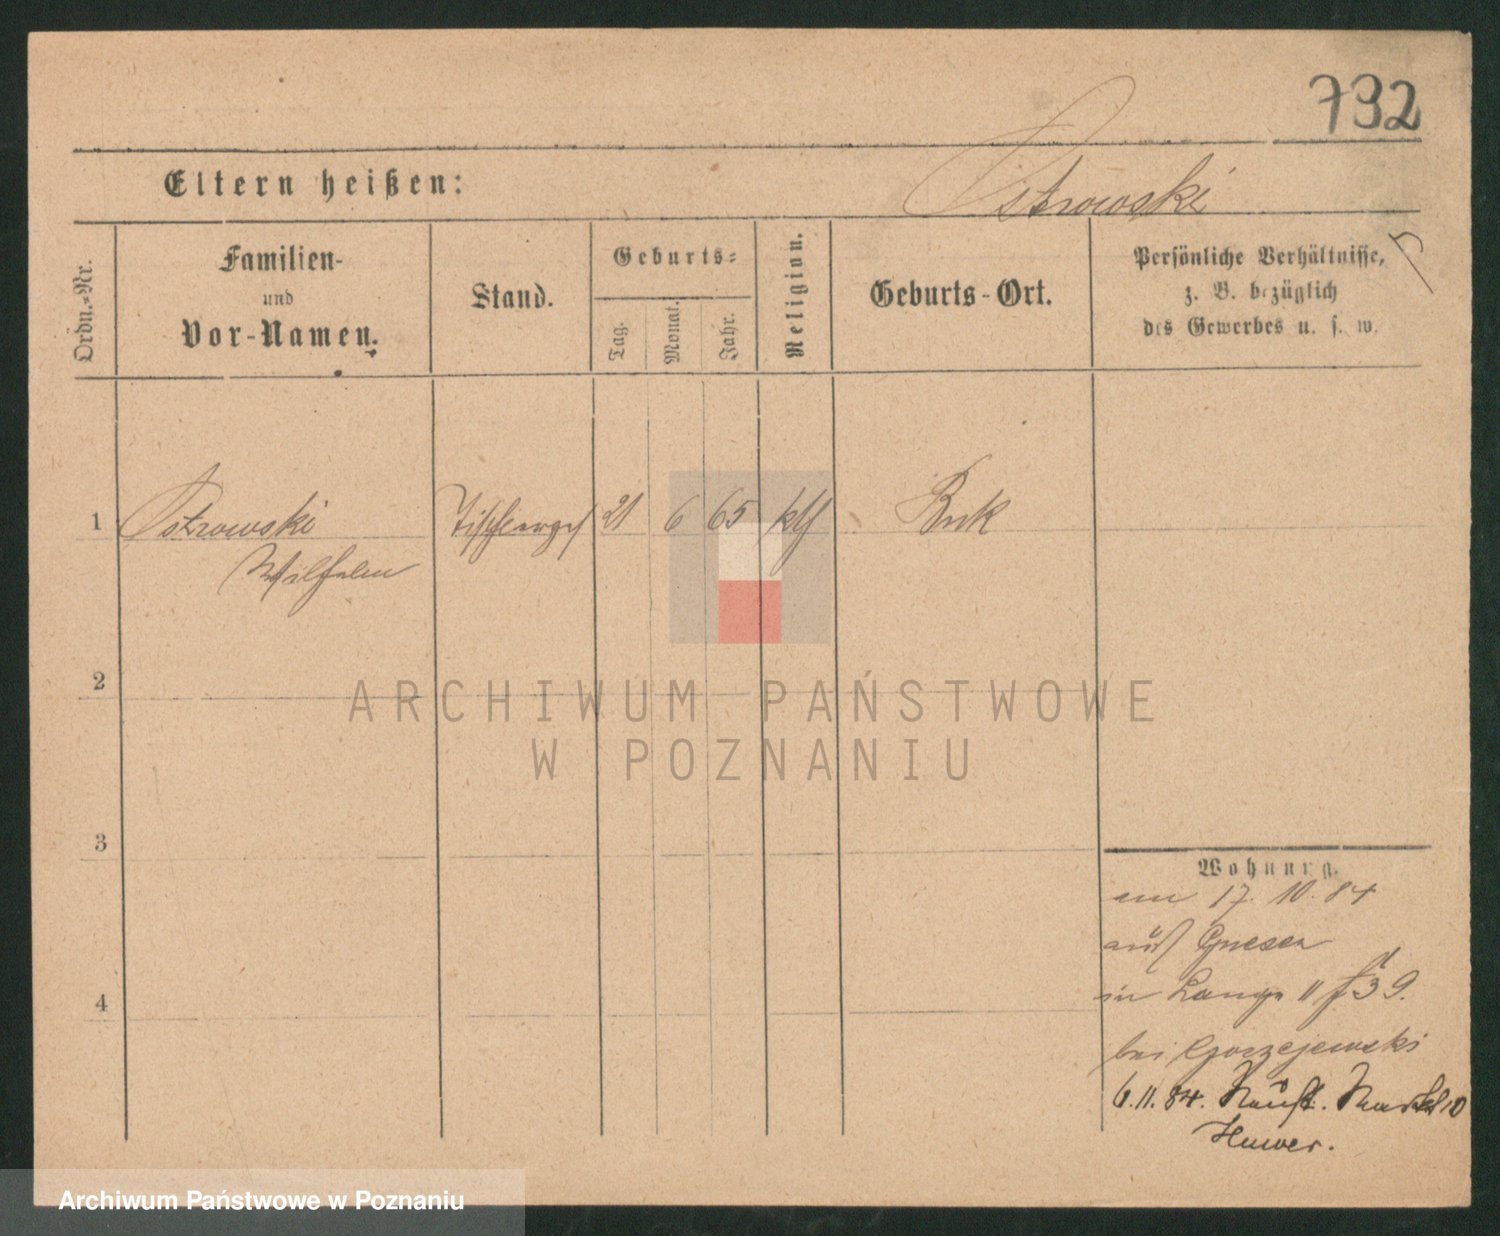 732
Eltern heißen:
Ostrowski
Ordn.-Nr.
Familien-
und
Vor-Namen.
Stand.
Geburts-
Tag.
Monat.
Jahr.
Religion.
Geburts-Ort.
Persönliche Verhältnisse,
z. B. bezüglich
des Gewerbes u. s. w.
1 Ostrowski Tischlerges 21 6 65 kth Buk
Wilhelm
2
ARCHIWUM PAŃSTWOWE
W POZNANIU
3
Wohnung.
am 17. 10. 84
aus Gnesen
4
in Lange 11
bei Gorzejewski
6.11.84. Neust. Markt 10
Huwer.
Archiwum Państwowe w Poznaniu